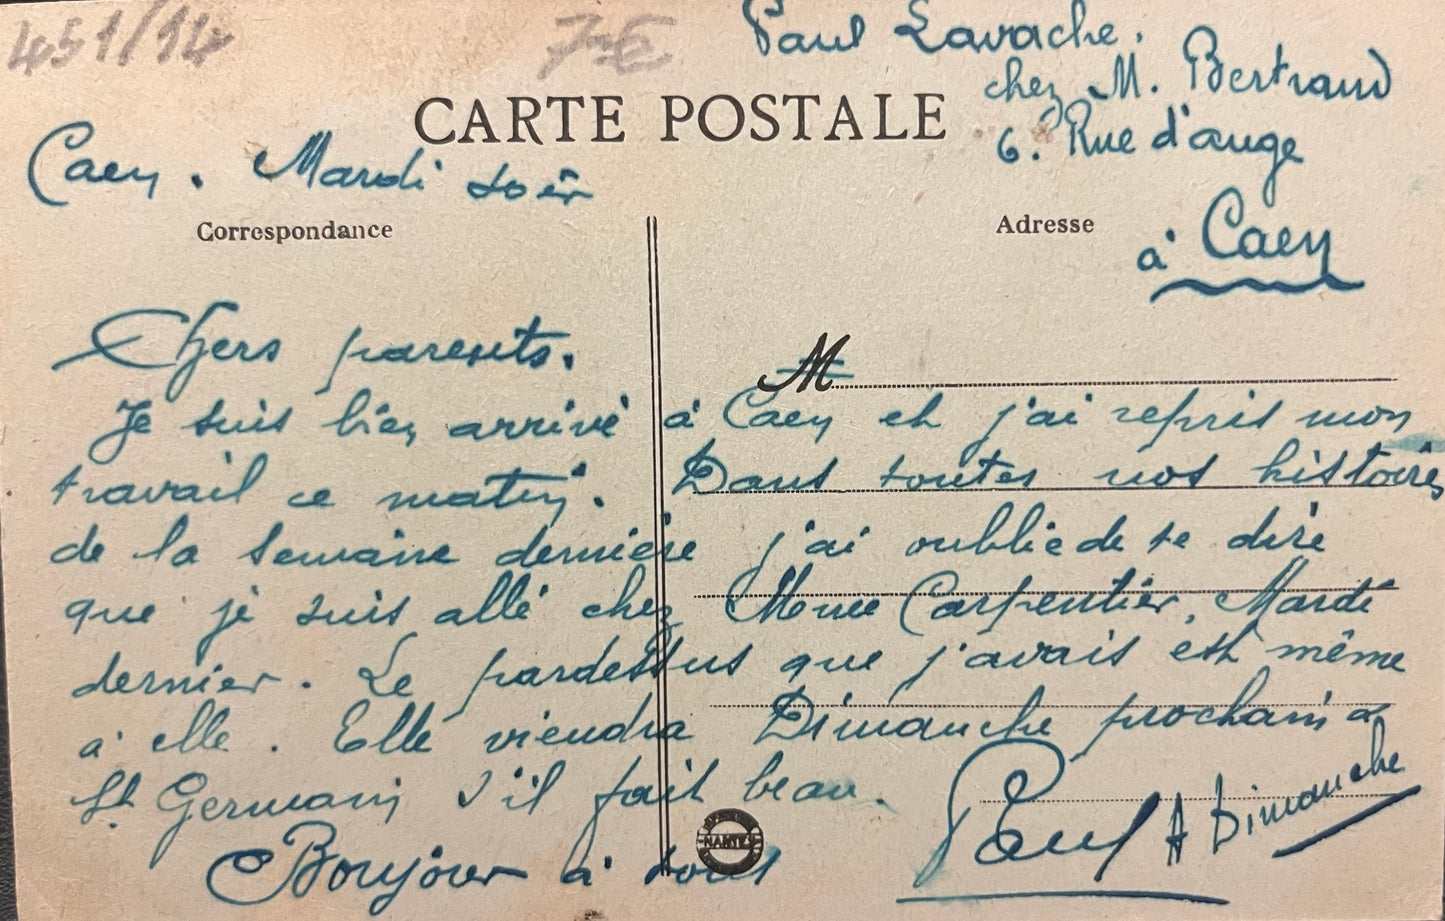 451/14
7-E
Paul Lavache.
chez M. Bertrand
6. Rue d'auge
à Caen
CARTE POSTALE
Caen. Mardi soir
Correspondance
Adresse
M
Chers parents.
Je suis bien arrivé à Caen et j'ai repris mon
travail ce matin. Dans toutes nos histoires
de la semaine dernière j'ai oublié de te dire
que je suis allé chez Carpentier Mardi
dernier. Le pardessus que j'avais est même
à elle. Elle viendra Dimanche prochain à
St Germain s'il fait beau.
Bonjour à tous
Paul A Dimanche
NANTES